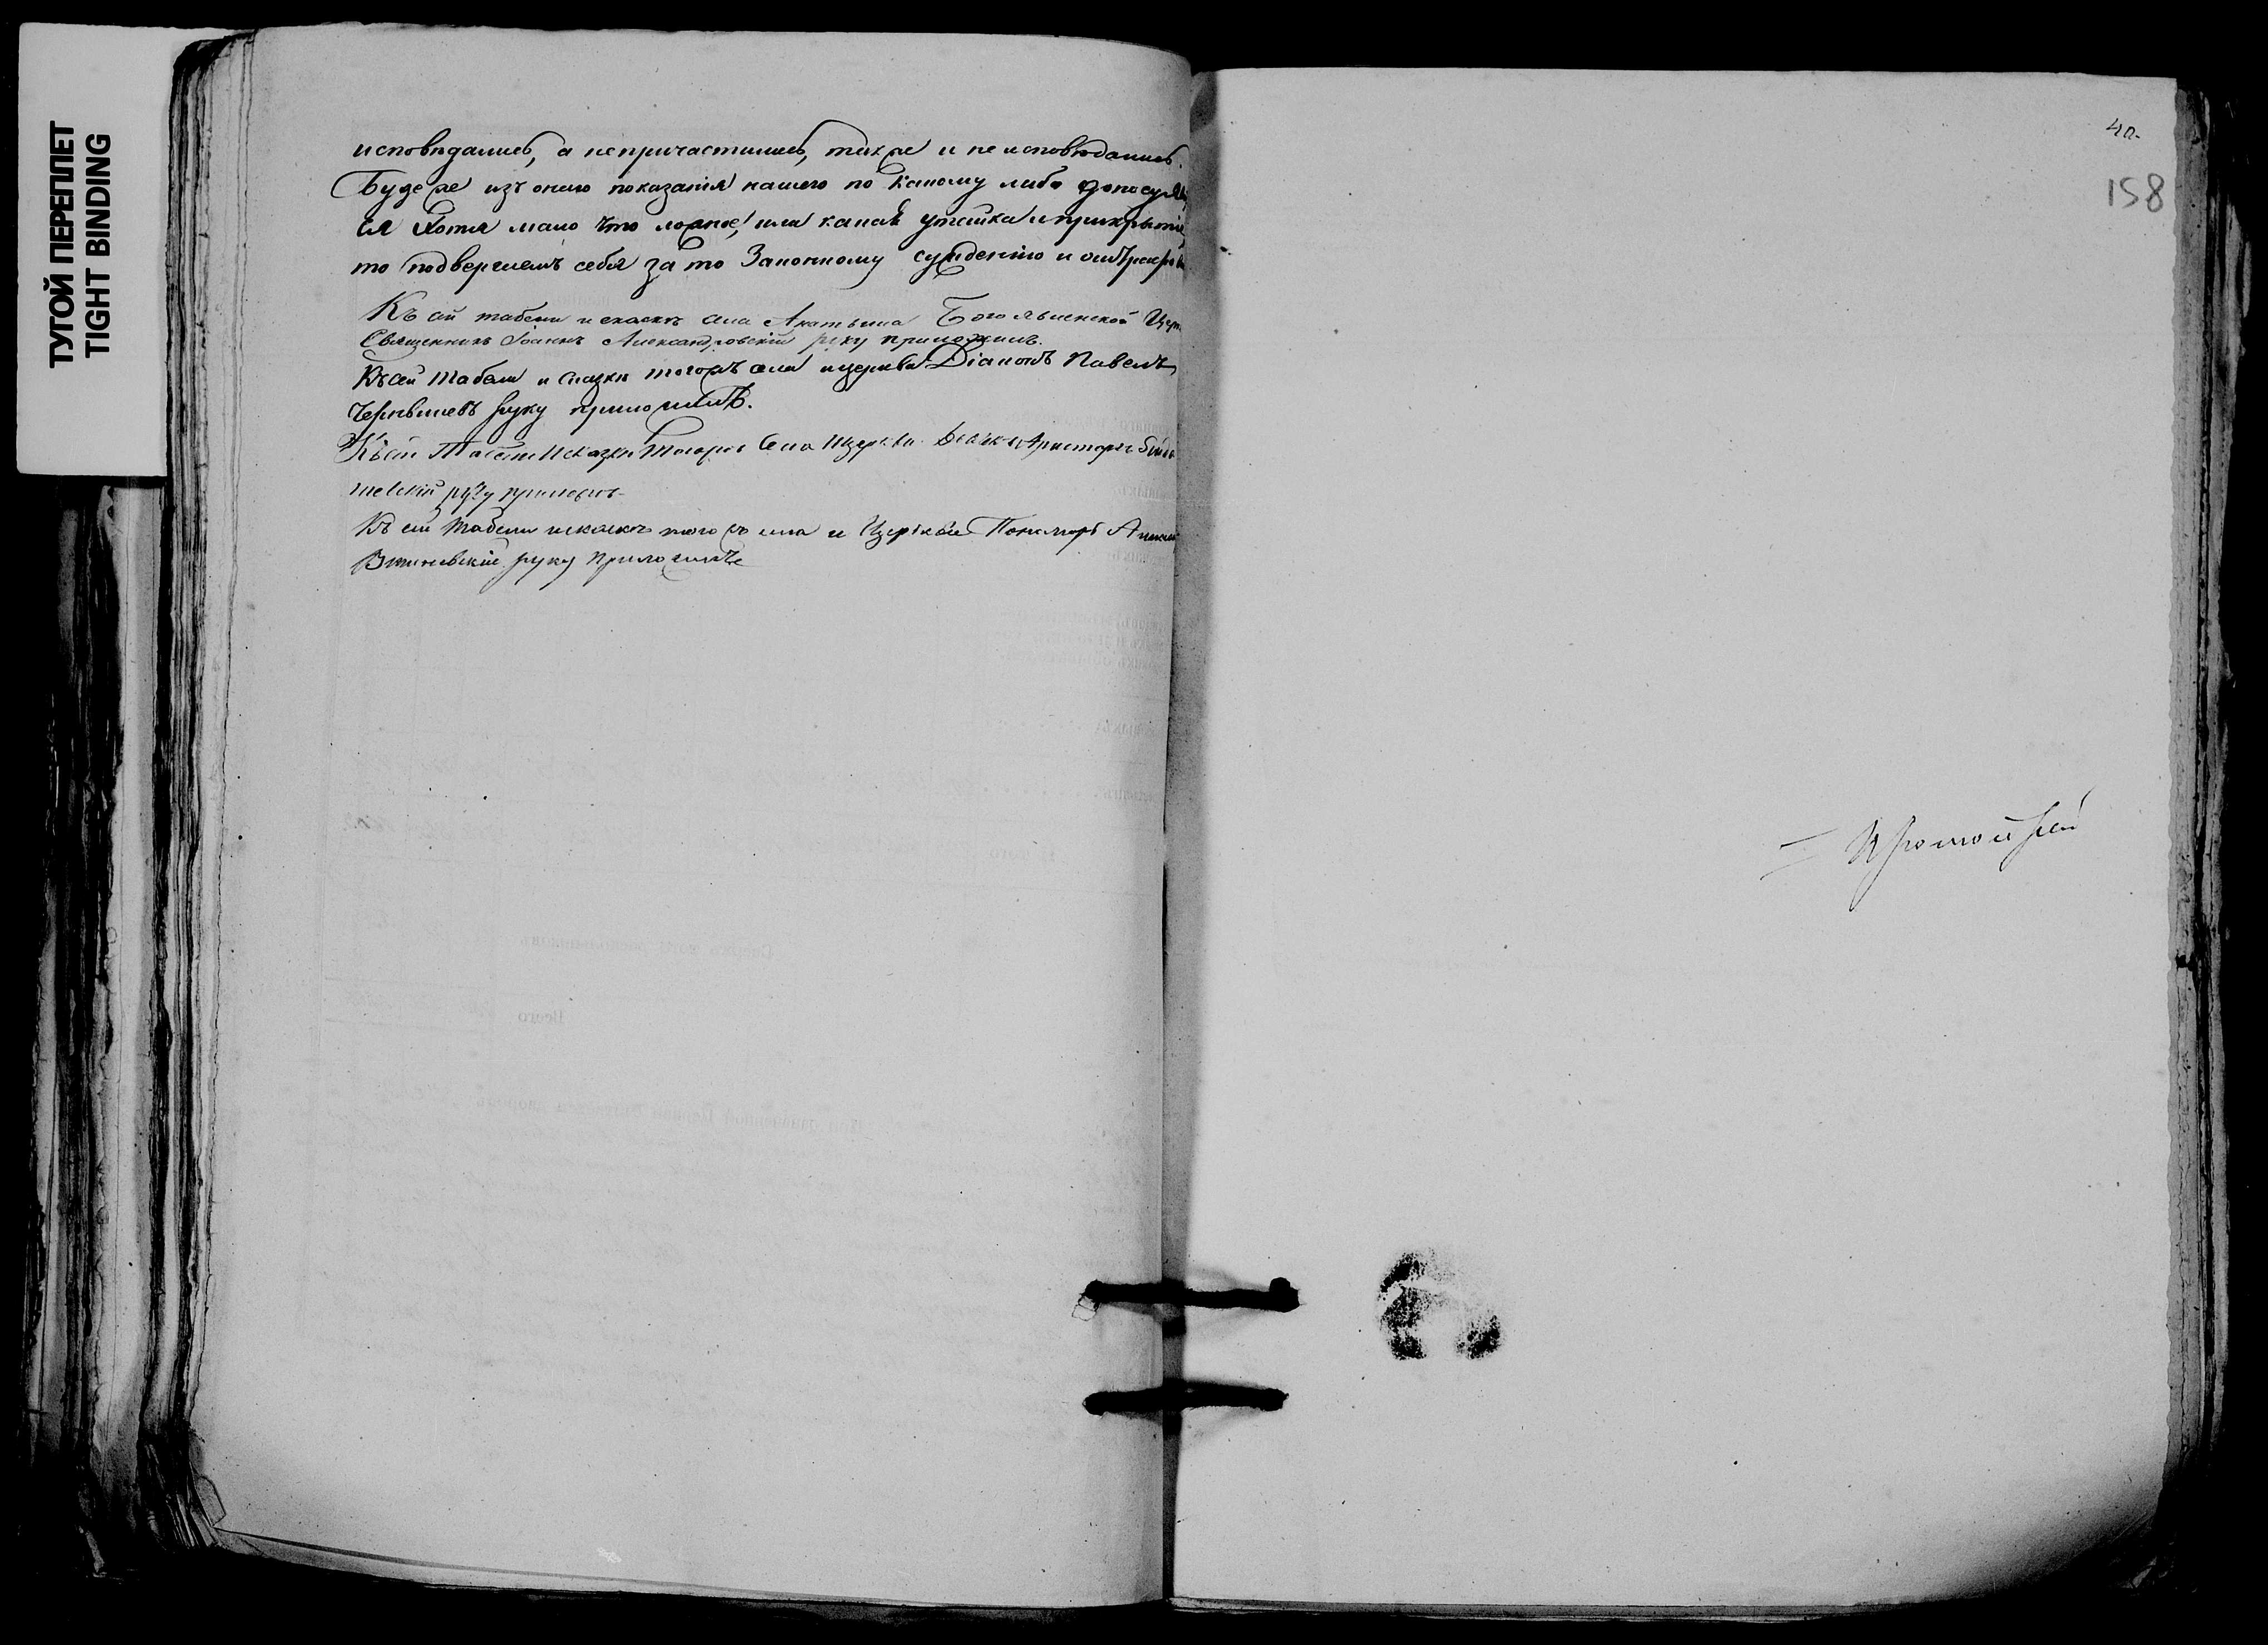 ТУГОЙ ПЕРЕПЛЕТ
TIGHT BINDING
исповѣдались, а непричастились, также и не исповѣдались.
Буде же изъ онаго показанія нашего по какому либо доносу
ся хотя мало что ложное, или какая утайка и прикрытіе,
то подвергаемъ себя за то Законному сужденію и
Къ сей табели и сказкѣ села Богоявленской
Священникъ Іоаннъ Александровскій руку приложилъ.
Къ сей Табели и Сказки тогожъ села и церкви Діаконъ Павелъ
Чернышевъ руку приложилъ.
Къ сей Табели и Сказки тогожъ Села и церкви
руку приложилъ
Къ сей табели и сказкѣ того жъ села и Церкви Пономарь
руку приложилъ
40.
158